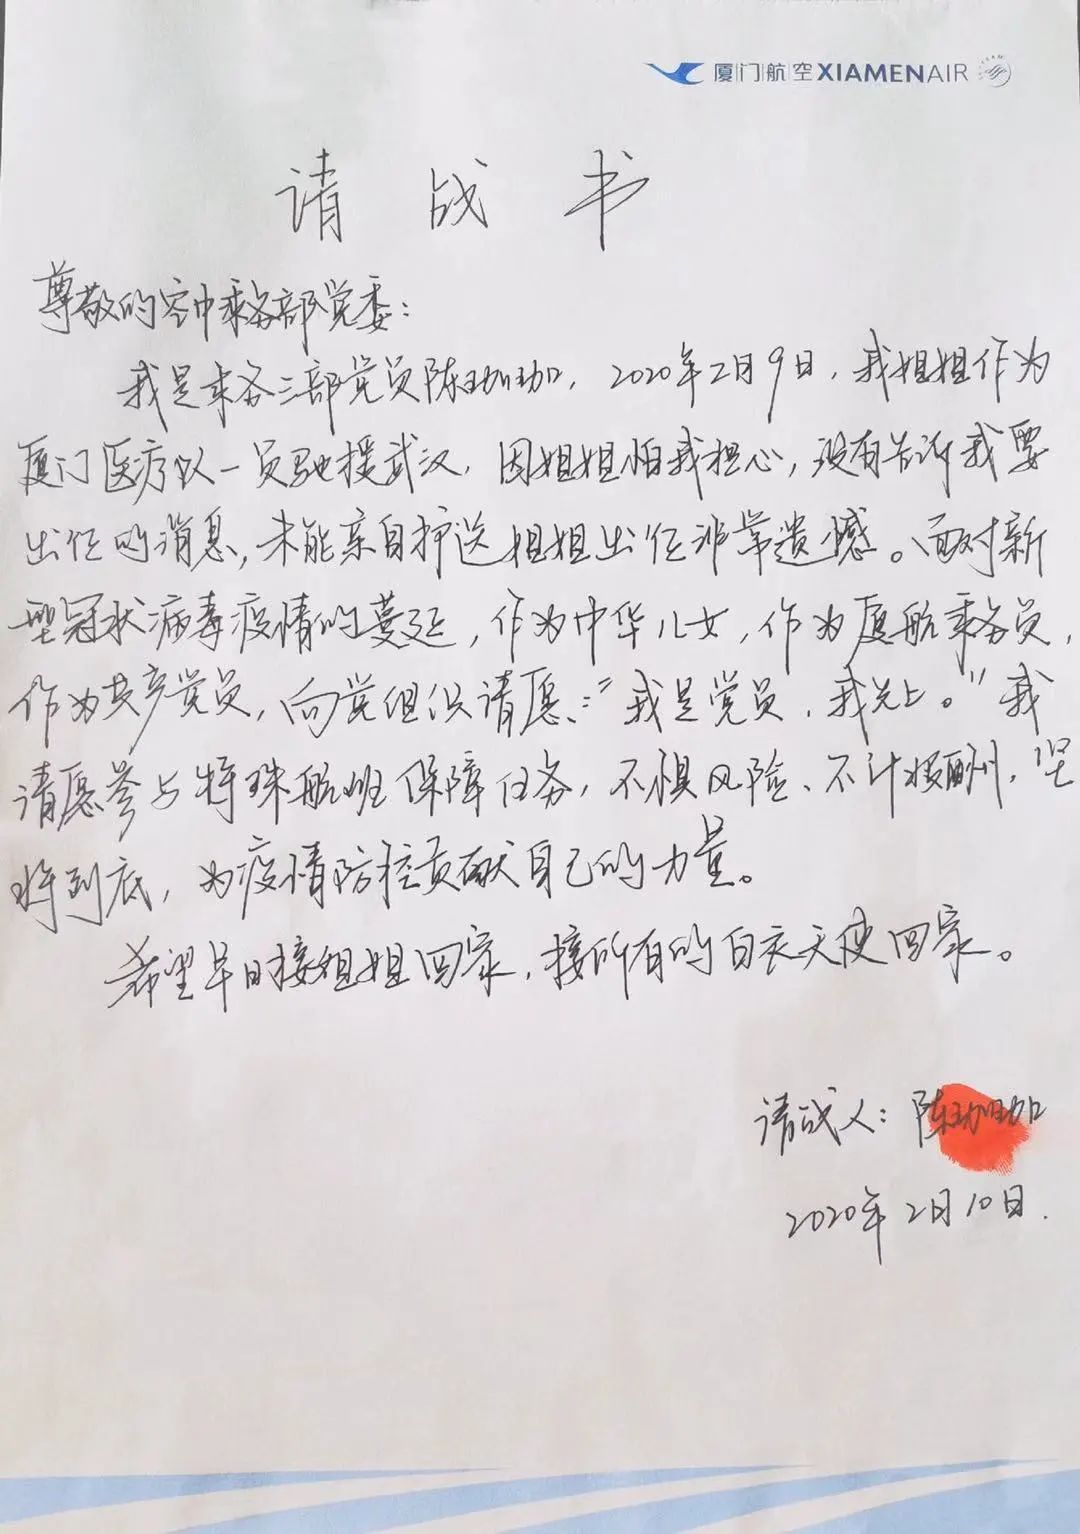 厦门航空 XIAMENAIR
请战书
尊敬的空中乘务部党委:
我是乘务三部党员陈珈珈, 2020年2月9日, 我姐姐作为
厦门医疗队一员驰援武汉, 因姐姐怕我担心, 没有告诉我要
出征的消息, 未能亲自护送姐姐出征非常遗憾。面对新
型冠状病毒疫情的蔓延, 作为中华儿女, 作为厦航乘务员,
作为共产党员, 向党组织请愿:"我是党员, 我先上。"我
请愿参与特殊航班保障任务, 不惧风险、不计报酬, 坚
持到底, 为疫情防控贡献自己的力量。
希望早日接姐姐回家, 接所有的白衣天使回家。
请战人: 陈珈珈
2020年2月10日.